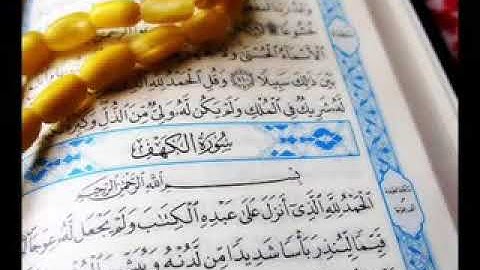 خُشُوعًا
الْأَسْمَاءُ الْحُسْنَىٰ
بَيْنَ ذَٰلِكَ سَبِيلًا ۝ وَقُلِ الْحَمْدُ لِلَّهِ
لَّهُ شَرِيكٌ فِي الْمُلْكِ وَلَمْ يَكُن لَّهُ وَلِيٌّ مِّنَ الذُّلِّ
سُورَةُ الْكَهْفِ
بِسْمِ اللَّهِ الرَّحْمَٰنِ الرَّحِيمِ
الْحَمْدُ لِلَّهِ الَّذِي أَنزَلَ عَلَىٰ عَبْدِهِ الْكِتَابَ وَلَمْ يَجْعَل لَّهُ عِوَجًا
قَيِّمًا لِّيُنذِرَ بَأْسًا شَدِيدًا مِّن لَّدُنْهُ وَيُبَشِّرَ